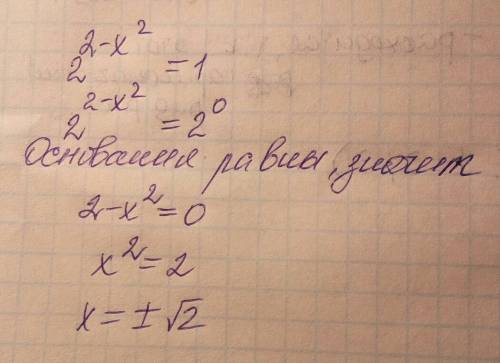 2^{2-x^2} = 1
2^{2-x^2} = 2^0
Основания равны, значит
2-x^2=0
x^2=2
x=±√2